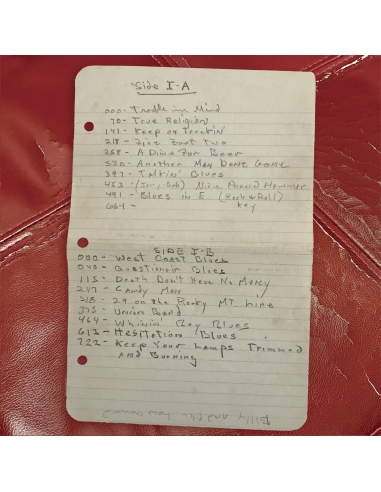 Side I-A
000 - Trouble in Mind
70 - True Religion
141 - Keep on Truckin'
218 - Zoot Two
258 - A Dime For Beer
330 - Another Man Done Gone
397 - Talkin' Blues
463 - Nine Pound Hammer
491 - Blues in E (Rock & Roll)
664 - key
SIDE I-B
000 - West Coast Blues
040 - Questionin Blues
115 - Death Don't Have No Mercy
247 - Candy Man
318 - 29 on the Rocky MT Line
375
464 - Whinin Boy Blues
613 - Hesitation Blues
722 - Keep Your Lamps Trimmed
And Burning
Billy and the